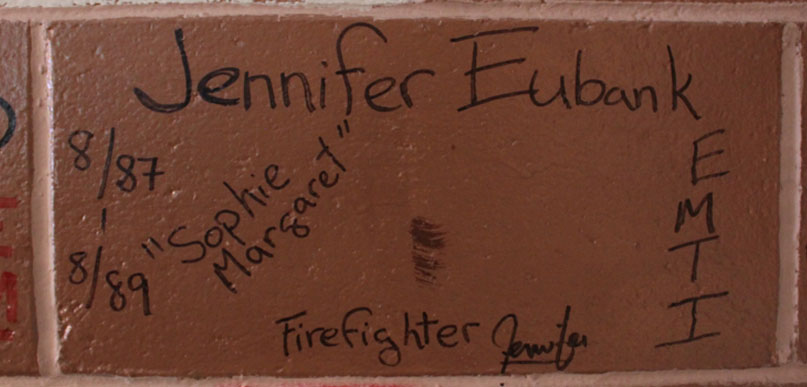 Jennifer Eubank
8/87
-
8/89
"Sophie
Margaret"
E
M
T
I
Firefighter Jennifer